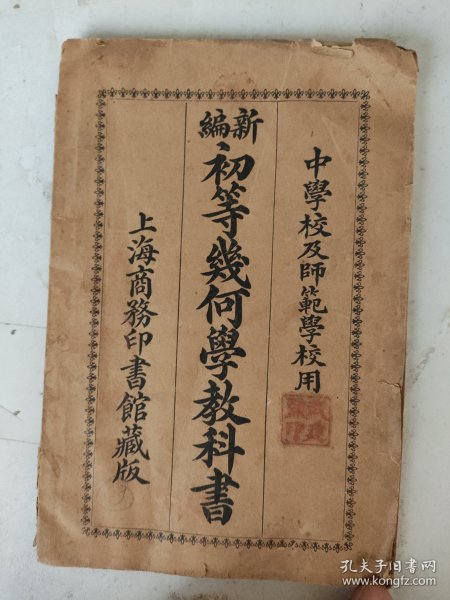 中學校及師範學校用
新編
初等幾何學教科書
上海商務印書館藏版
孔夫子旧书网
www.kongfz.com